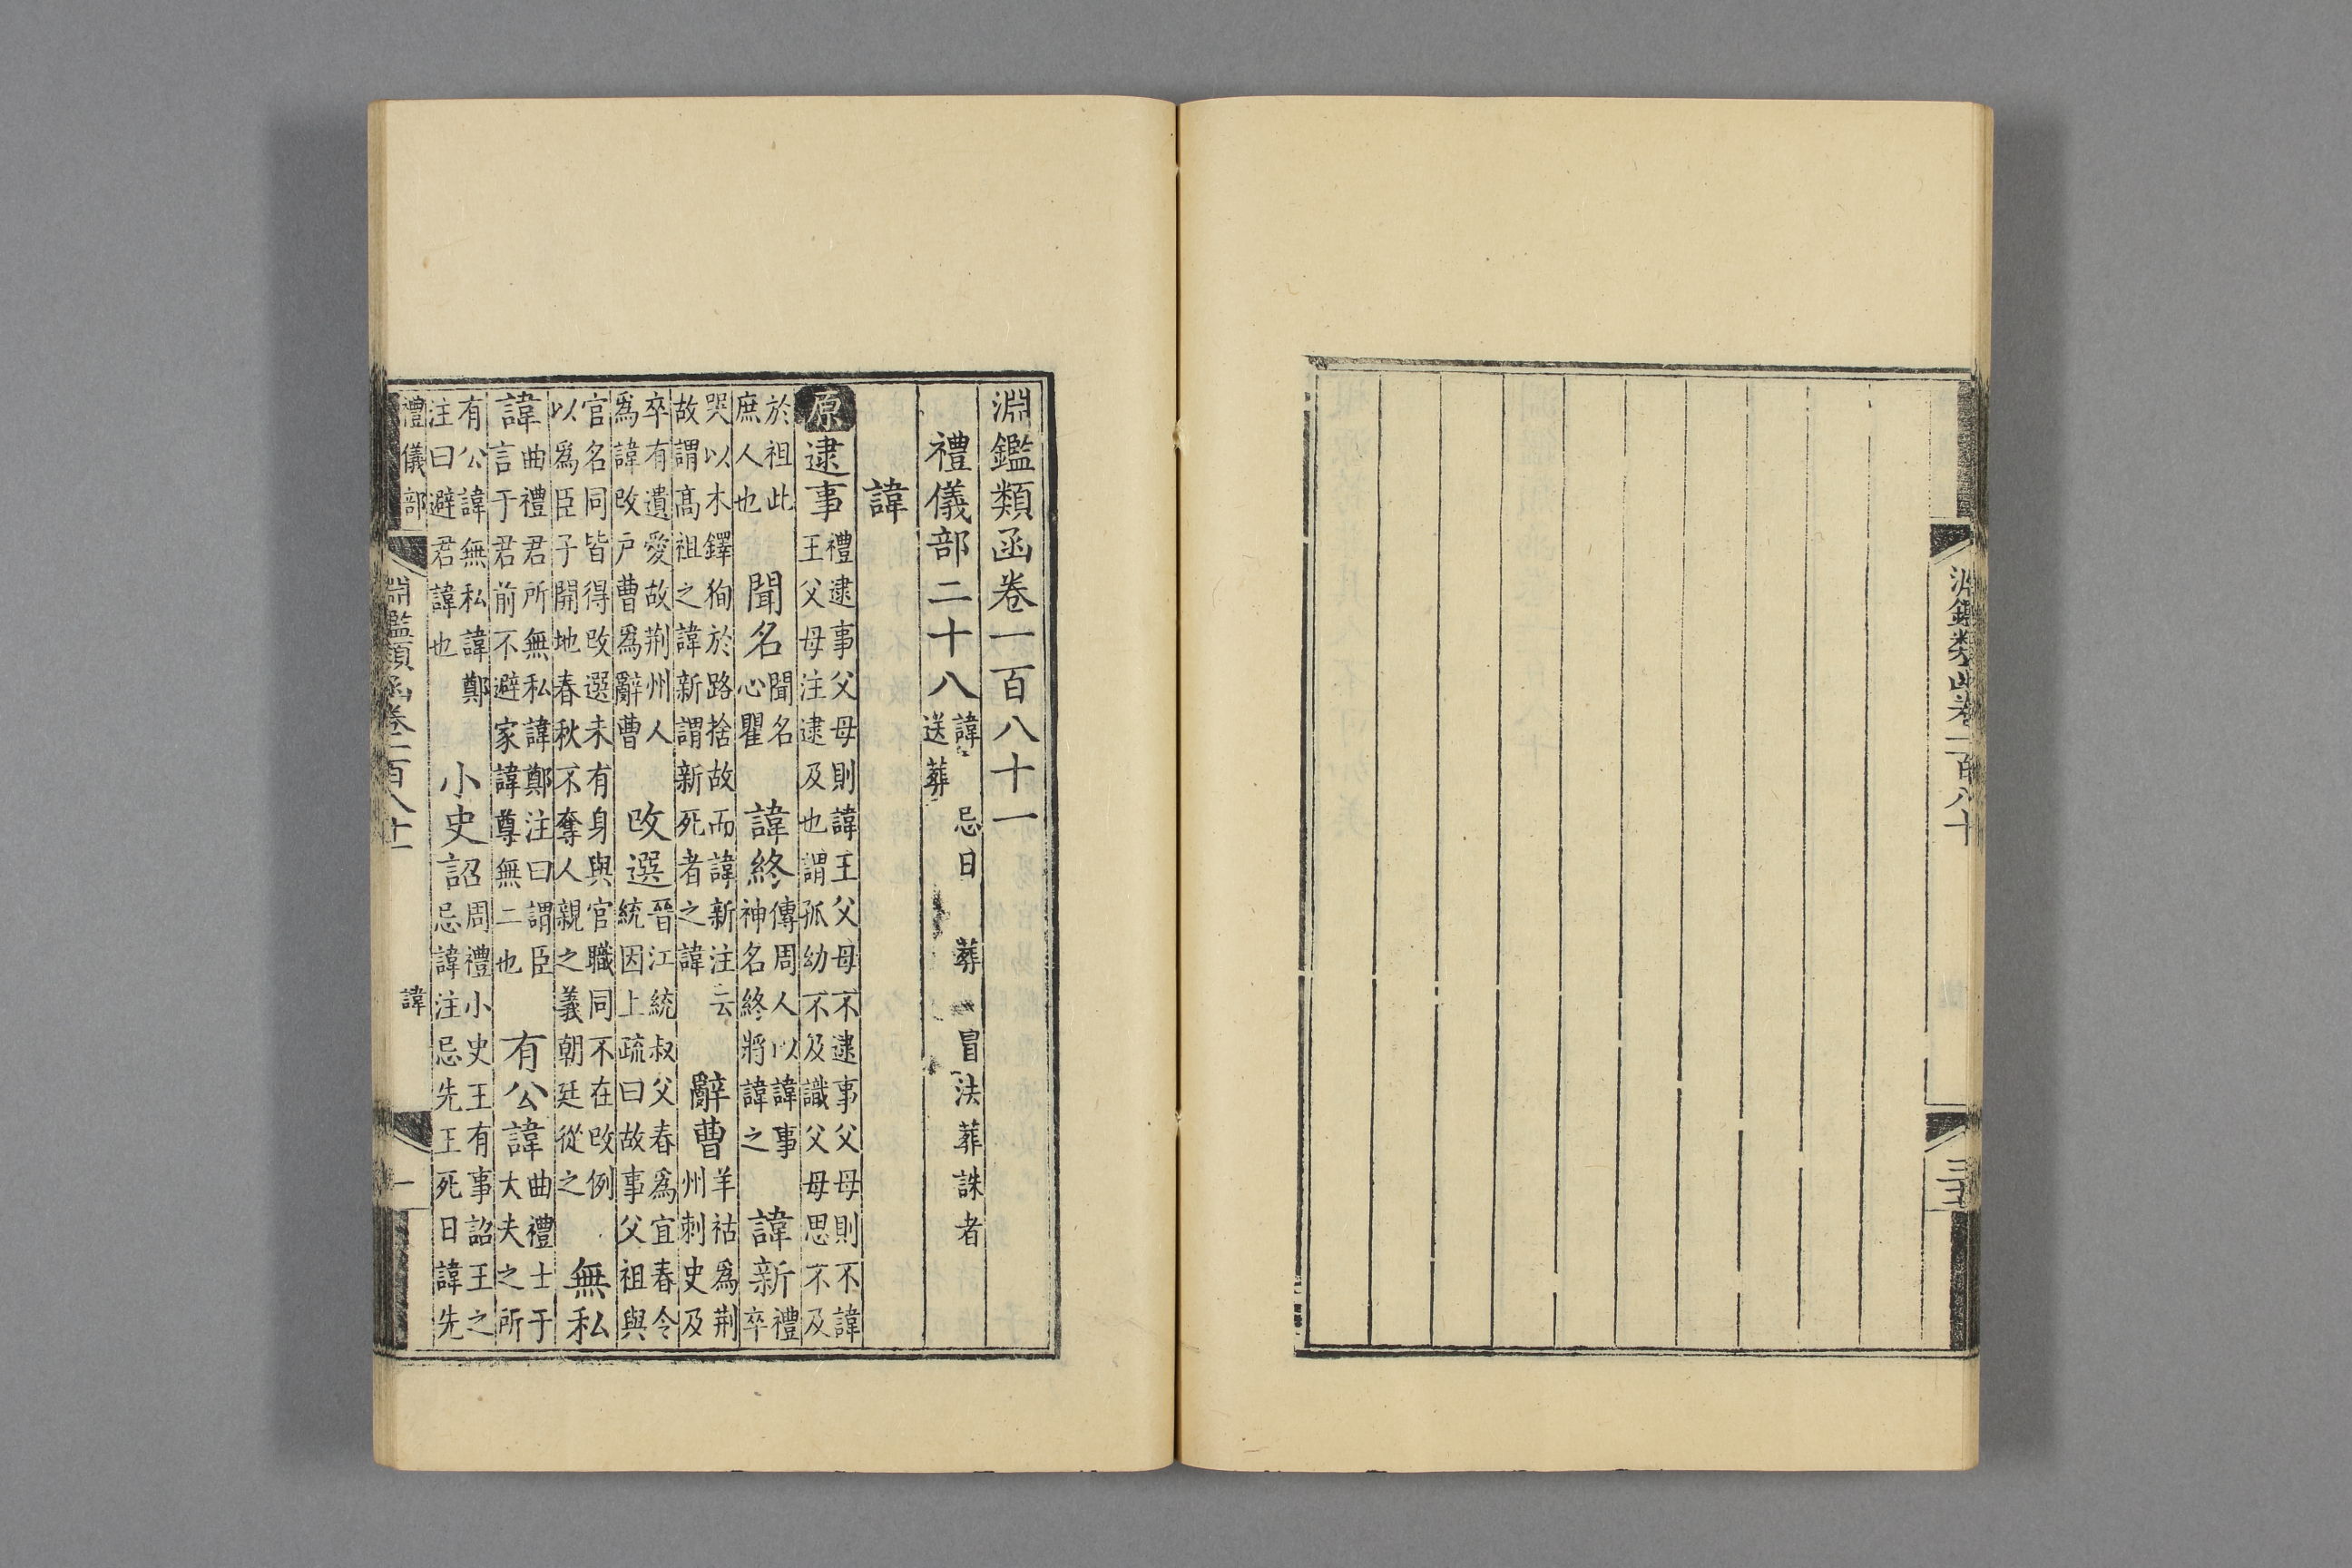 淵鑑類函卷一百八十
三五
淵鑑類函卷一百八十一
禮儀部二十八 諱 忌日 葬 冒法葬誅者 送葬
諱
原 逮事 禮逮事父母則諱王父母不逮事父母則不諱王父母注逮及也謂孤幼不及識父母思不及
於祖此庶人也 聞名 聞名心瞿 諱終 傳周人以諱事神名終將諱之 諱新 禮卒
哭以木鐸狥於路捨故而諱新注云故謂髙祖之諱新謂新死者之諱 辭曹 羊祜爲荆州刺史及
卒有遺愛故荆州人爲諱改戸曹爲辭曹 改選 晉江統叔父春爲宜春令統因上疏曰故事父祖與
官名同皆得改選未有身與官職同不在改例以爲臣子開地春秋不奪人親之義朝廷從之 無私
諱 曲禮君所無私諱鄭注曰謂臣言于君前不避家諱尊無二也 有公諱 曲禮士于大夫之所
有公諱無私諱鄭注曰避君諱也 小史詔 周禮小史王有事詔王之忌諱注忌先王死日諱先
禮儀部
淵鑑類函卷一百八十一
諱
一